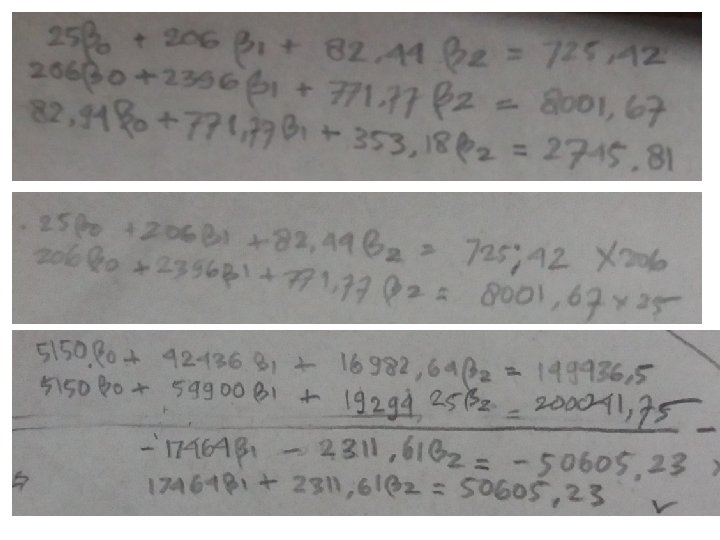 25β₀ + 206 β₁ + 82.44 β₂ = 725,42
206β₀ + 2396β₁ + 771,77 β₂ = 8001,67
82,44β₀ + 771,77β₁ + 353,18β₂ = 2745.81
25β₀ + 206β₁ + 82,44β₂ = 725,42 ×206
206β₀ + 2396β₁ + 771,77 β₂ = 8001,67 × 25
5150β₀ + 42436β₁ + 16982,64β₂ = 149436,5
5150β₀ + 59900β₁ + 19294,25β₂ = 200041,75 −
−17464β₁ − 2311,61β₂ = −50605,23
17464β₁ + 2311,61β₂ = 50605,23